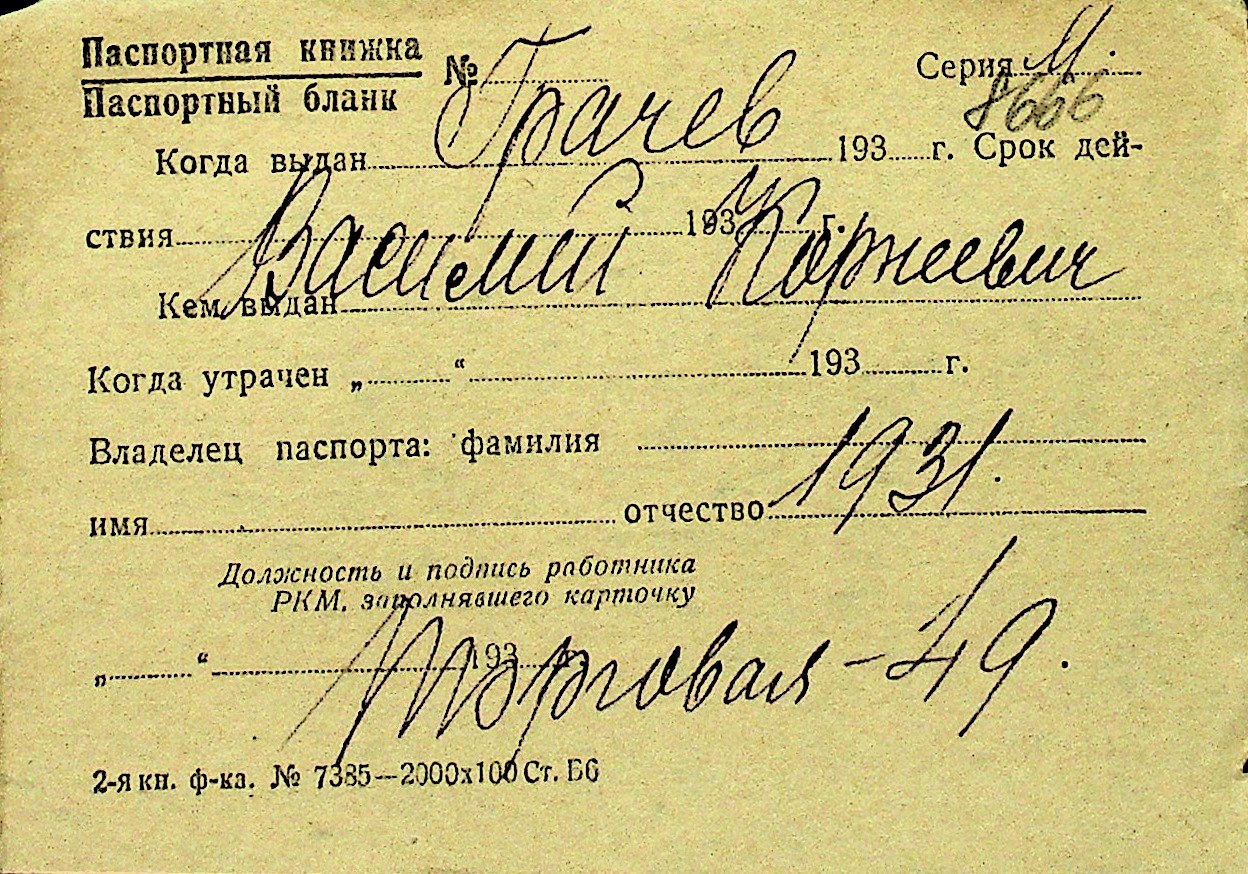 Паспортная книжка
Паспортный бланк
№
Серия М.
8666
Грачев
Когда выдан 193 г. Срок дей-
ствия 193 г.
Василий Корнеевич
Кем выдан
Когда утрачен „ “ 193 г.
Владелец паспорта: фамилия
1931.
имя отчество
Должность и подпись работника
РКМ, заполнявшего карточку
„ “ 193 г.
Торговая - 49.
2-я кн. ф-ка. № 7385—2000х100 Ст. Б6